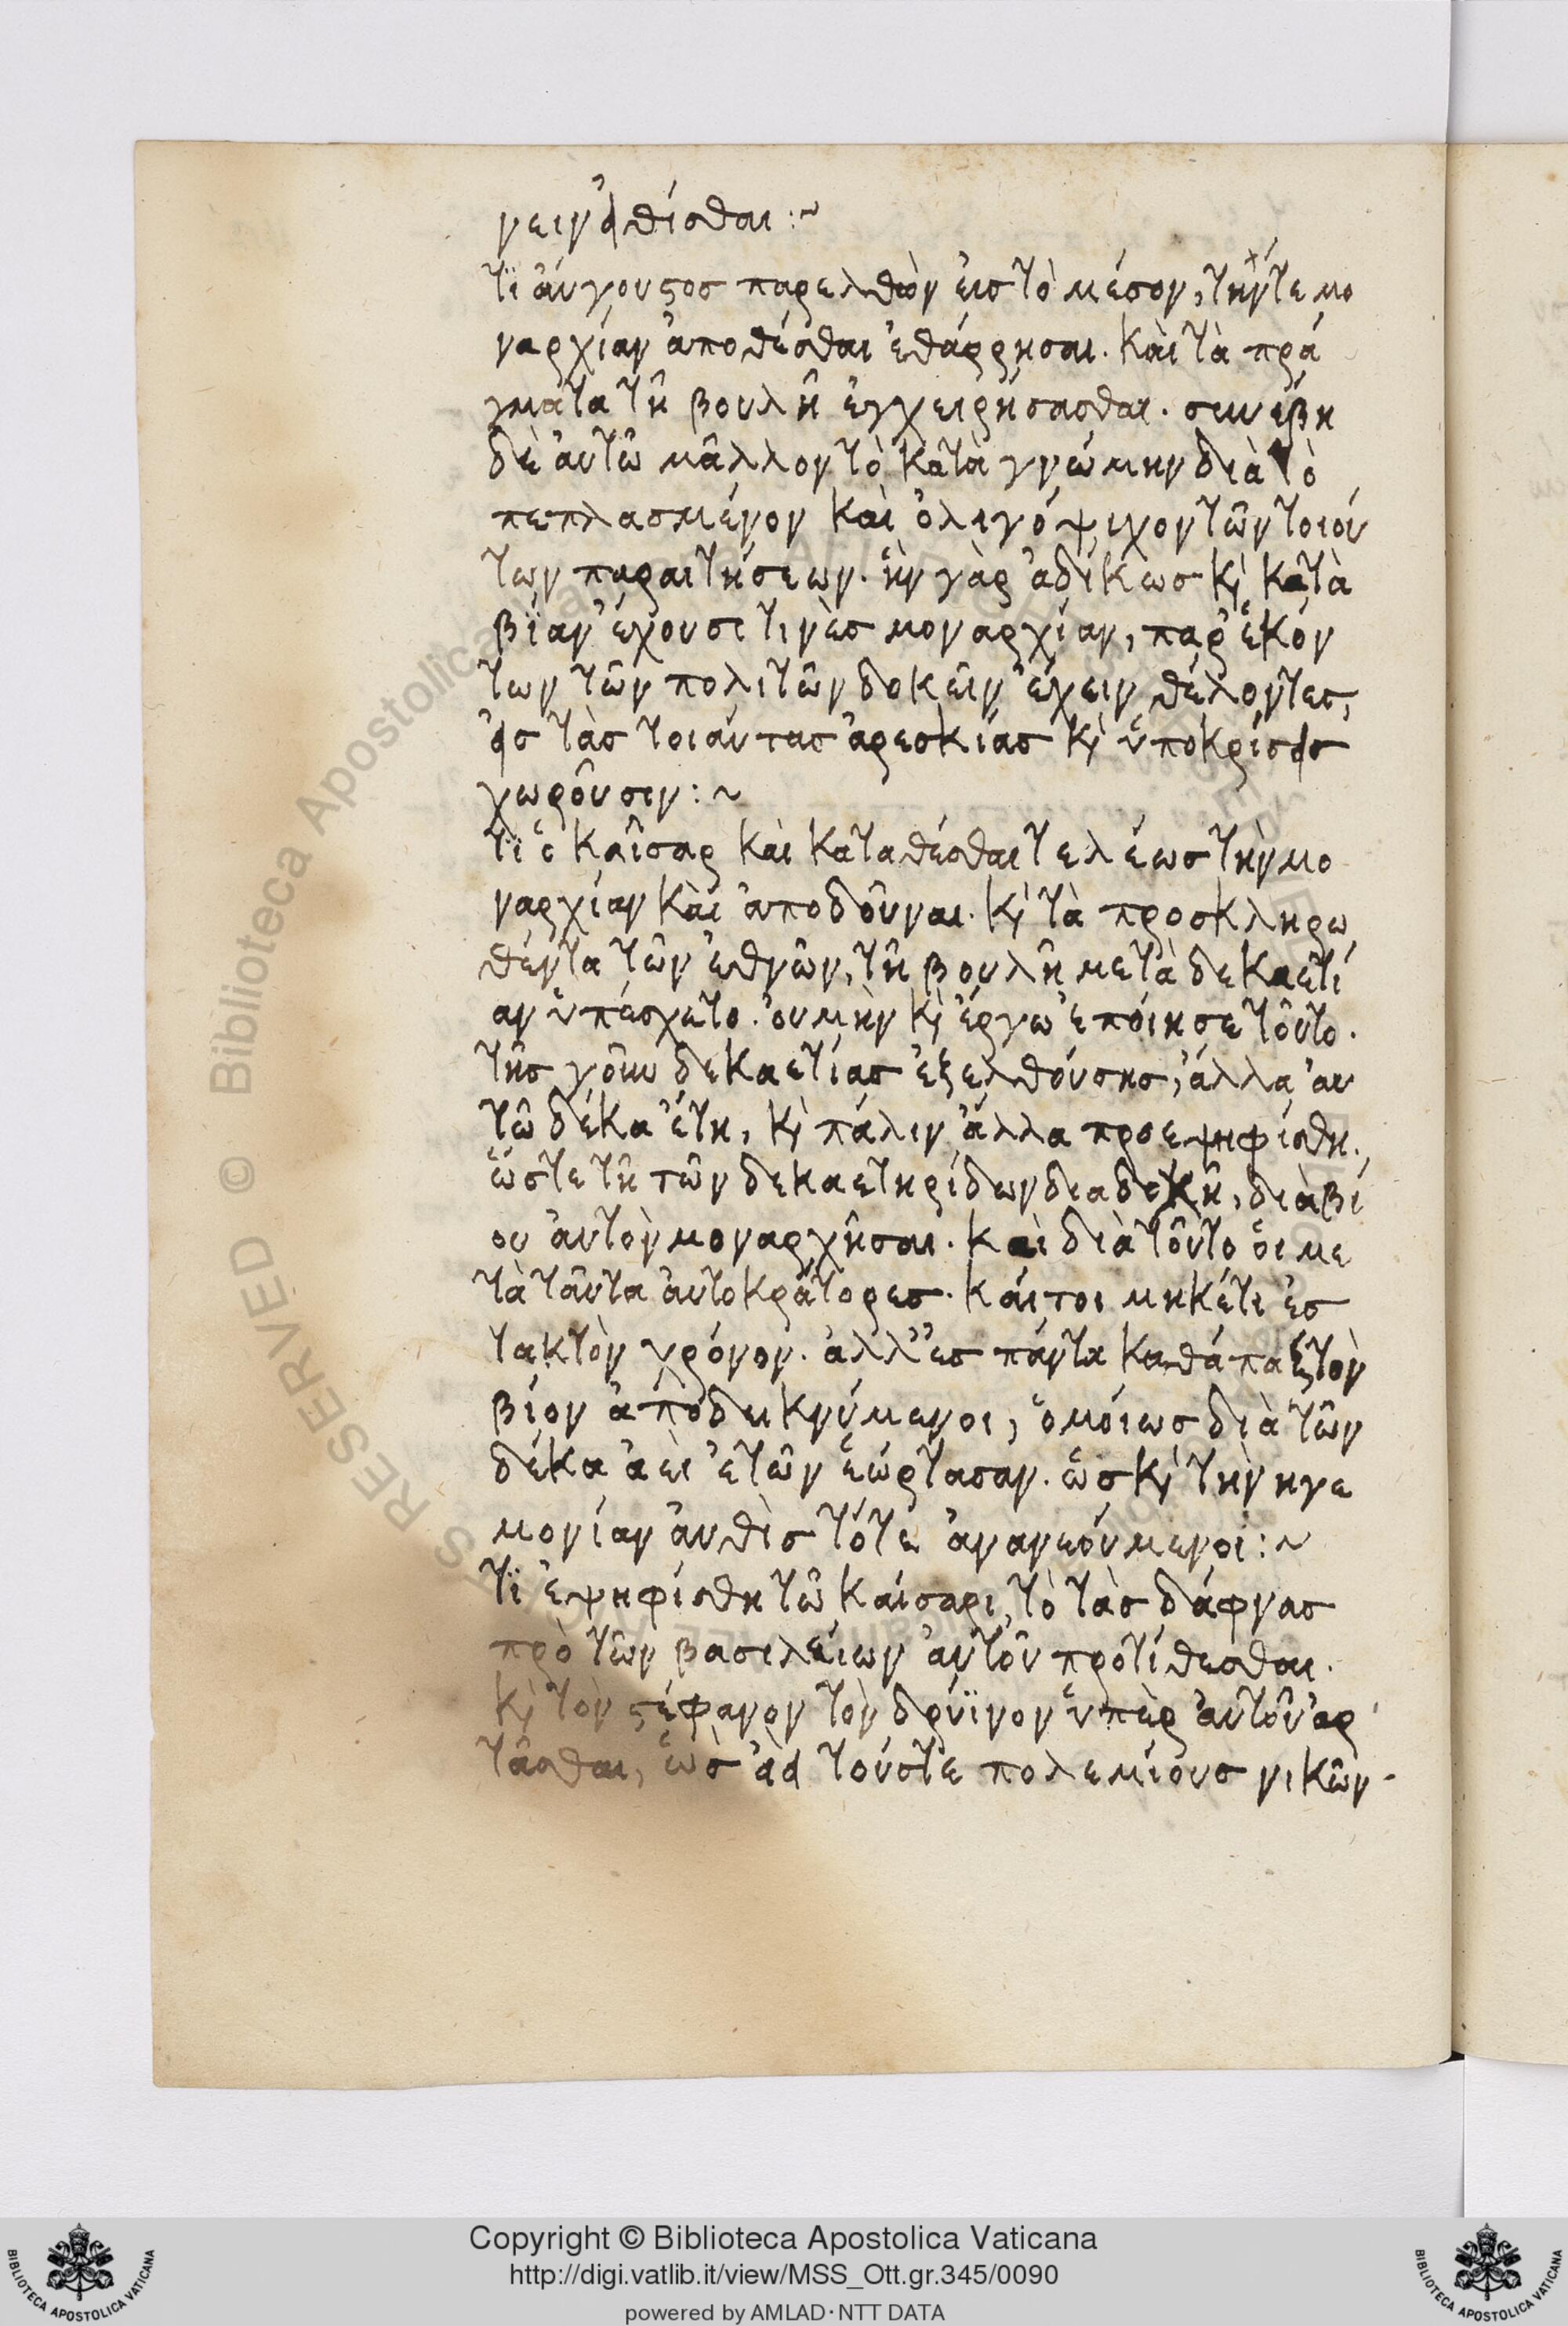 νειν εἰθίσθαι :~
Ὅτι ἀύγουστος παρελθὼν ἐις τὸ μέσον, τήν τε μο
ναρχίαν ἀποθέσθαι ἐθάρρησαι. καὶ τὰ πρά
γματα τῆ βουλῆ ἐγχειρήσασθαι. συνέβη
δὲ ἀυτῶ μᾶλλον τὸ κατὰ γνώμην διὰ τὸ
πεπλασμένον καὶ ὀλιγόψιχον τῶν τοιού
των παραιτήσεων. ἣν γὰρ ἀδίκως κὶ κατὰ
βίαν ἔχουσι τινὲς μοναρχίαν, παρ' ἑκόν
των τῶν πολιτῶν δοκεῖν ἔχειν θέλοντες,
εἰς τὰς τοιάυτας ἀρεσκίας κὶ ὑποκρίσεις
χωροῦσιν :~
Ὅτι ὁ καῖσαρ καὶ καταθέσθαι τελέως τὴν μο
ναρχίαν καὶ ἀποδοῦναι. κὶ τὰ προσκληρω
θέντα τῶν ἐθνῶν, τῆ βουλῆ μετὰ δεκαετί
αν ὑπέσχετο. ὀυ μὴν κὶ ἔργω ἐποίησε τοῦτο.
τῆς γοῦν δεκαετίας ἐξελθούσης, ἄλλα ἀυ
τῶ δέκα ἔτη, κὶ πάλιν ἄλλα προεψηφίσθη.
ὥστε τῆ τῶν δεκαετηρίδων διαδοχῆ, διὰ βί
ου ἀυτὸν μοναρχῆσαι. καὶ διὰ τοῦτο ὁι με
τὰ ταῦτα ἀυτοκράτορες. κάιτοι μηκέτι ἐς
τακτὸν χρόνον. ἀλλ' ἐς πάντα καθάπαξ τὸν
βίον ἀποδεικνύμενοι, ὁμόιως διὰ τῶν
δέκα ἀεὶ ἐτῶν ἑώρτασαν. ὡς κὶ τὴν ηγε
μονίαν ἀυθὶς τότε ἀνανεούμενοι :~
Ὅτι ἐψηφίσθη τῶ καίσαρι, τὸ τὰς δάφνας
πρὸ τῶν βασιλείων ἀυτοῦ προτίθεσθαι.
κὶ τὸν στέφανον τὸν δρύϊνον ὑπὲρ ἀυτοῦ ἀρ
τᾶσθαι, ὡς ἀεὶ τούς τε πολεμίους νικῶν
Copyright © Biblioteca Apostolica Vaticana
http://digi.vatlib.it/view/MSS_Ott.gr.345/0090
powered by AMLAD · NTT DATA